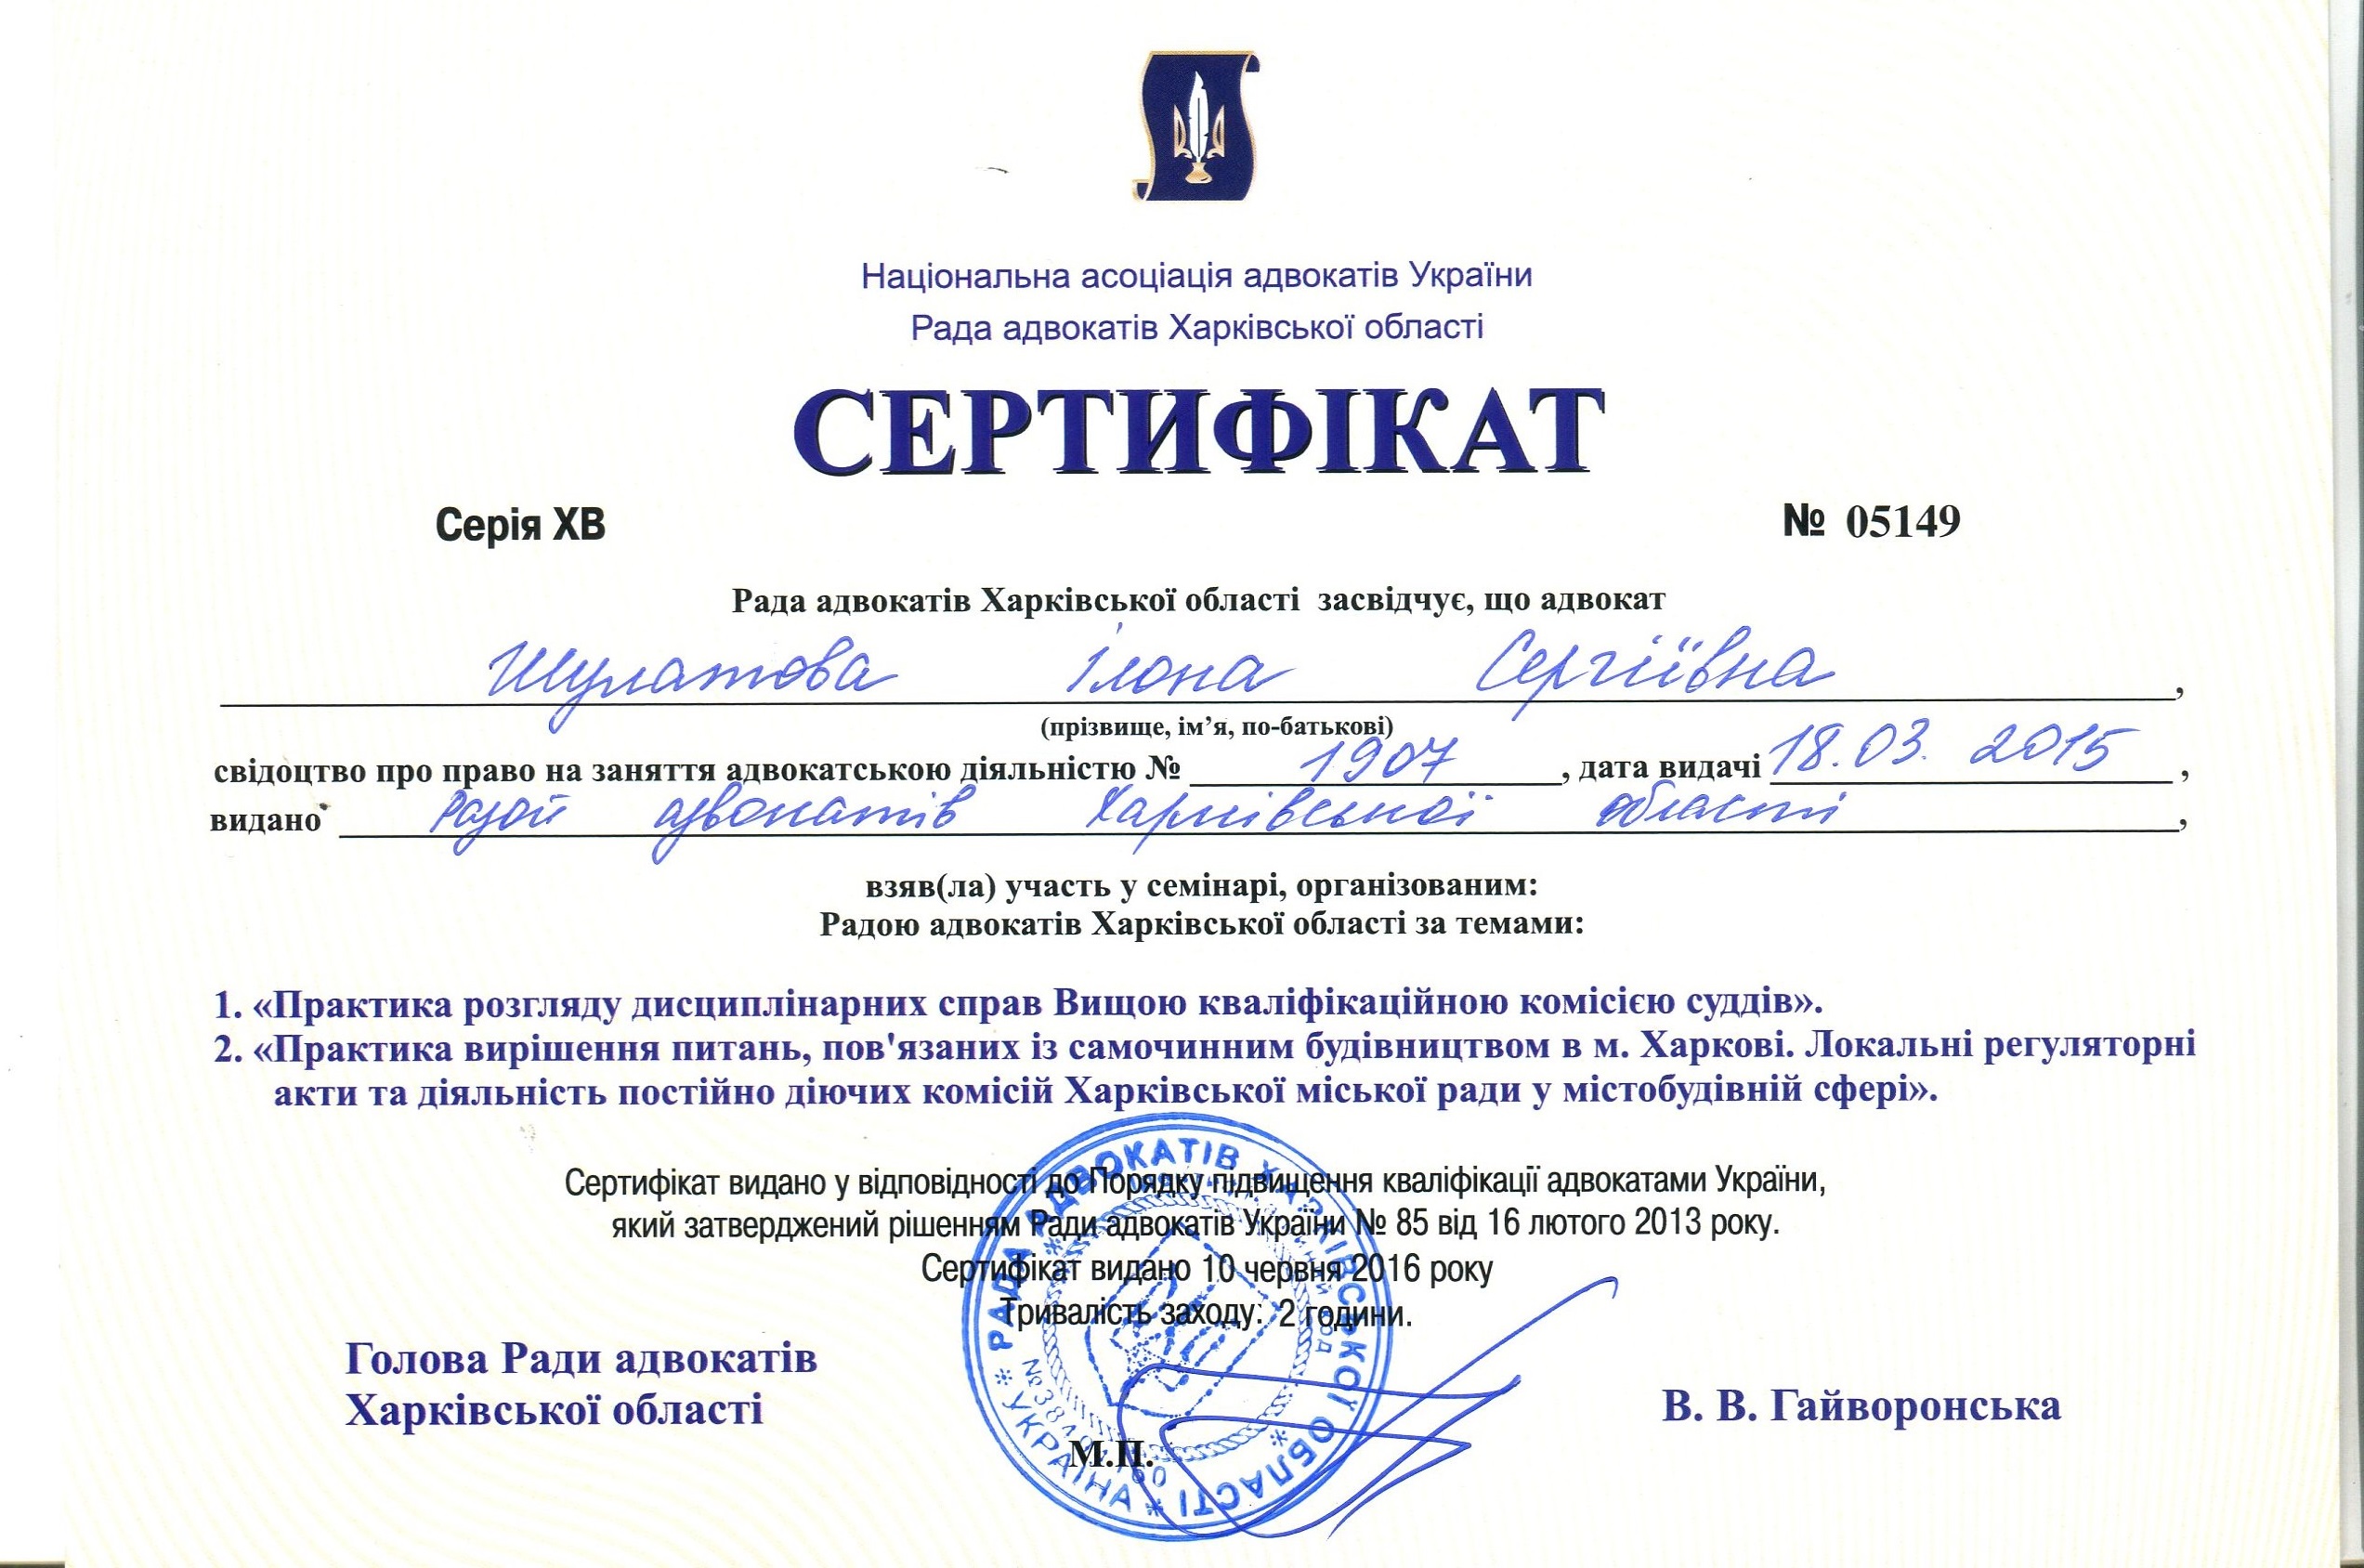 Національна асоціація адвокатів України
Рада адвокатів Харківської області
СЕРТИФІКАТ
Серія ХВ № 05149
Рада адвокатів Харківської області засвідчує, що адвокат
Шулатова Ілона Сергіївна,
(прізвище, ім’я, по-батькові)
свідоцтво про право на заняття адвокатською діяльністю № 1907, дата видачі 18.03.2015,
видано Радой адвокатів Харківської області,
взяв(ла) участь у семінарі, організованим:
Радою адвокатів Харківської області за темами:
1. «Практика розгляду дисциплінарних справ Вищою кваліфікаційною комісією суддів».
2. «Практика вирішення питань, пов'язаних із самочинним будівництвом в м. Харкові. Локальні регуляторні
акти та діяльність постійно діючих комісій Харківської міської ради у містобудівній сфері».
Сертифікат видано у відповідності до Порядку підвищення кваліфікації адвокатами України,
який затверджений рішенням Ради адвокатів України № 85 від 16 лютого 2013 року.
Сертифікат видано 10 червня 2016 року
Тривалість заходу: 2 години.
Голова Ради адвокатів
Харківської області
В. В. Гайворонська
М.П.
РАДА АДВОКАТІВ ХАРКІВСЬКОЇ ОБЛАСТІ * УКРАЇНА *